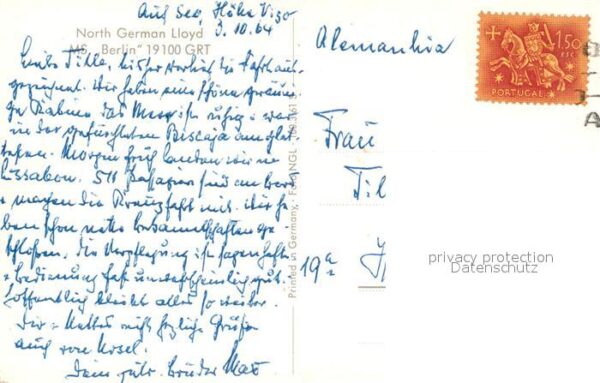 Auf See, Höhe Vigo
3.10.64
North German Lloyd
MS. „Berlin" 19100 GRT
Liebe Tilla, bisher verlief die Fahrt aus-
gezeichnet. Wir haben eine schöne geräumi-
ge Kabine, das Meer ist ruhig + war
in der gefürchteten Biscaja am
Morgen früh landen wir in
Lissabon. 511 Passagiere sind an Bord
+ machen die Kreuzfahrt mit. Wir ha-
ben schon nette Bekanntschaften ge-
schlossen, die Verpflegung ist fabelhaft
+ Bedienung fast unwahrscheinlich gut.
Hoffentlich bleibt alles so weiter.
Dir + herzliche Grüße
auch von Ursel.
Dein Bruder Max
Printed in Germany.
Alemanhia
Frau
Til
19a
1$50
PORTUGAL
privacy protection
Datenschutz